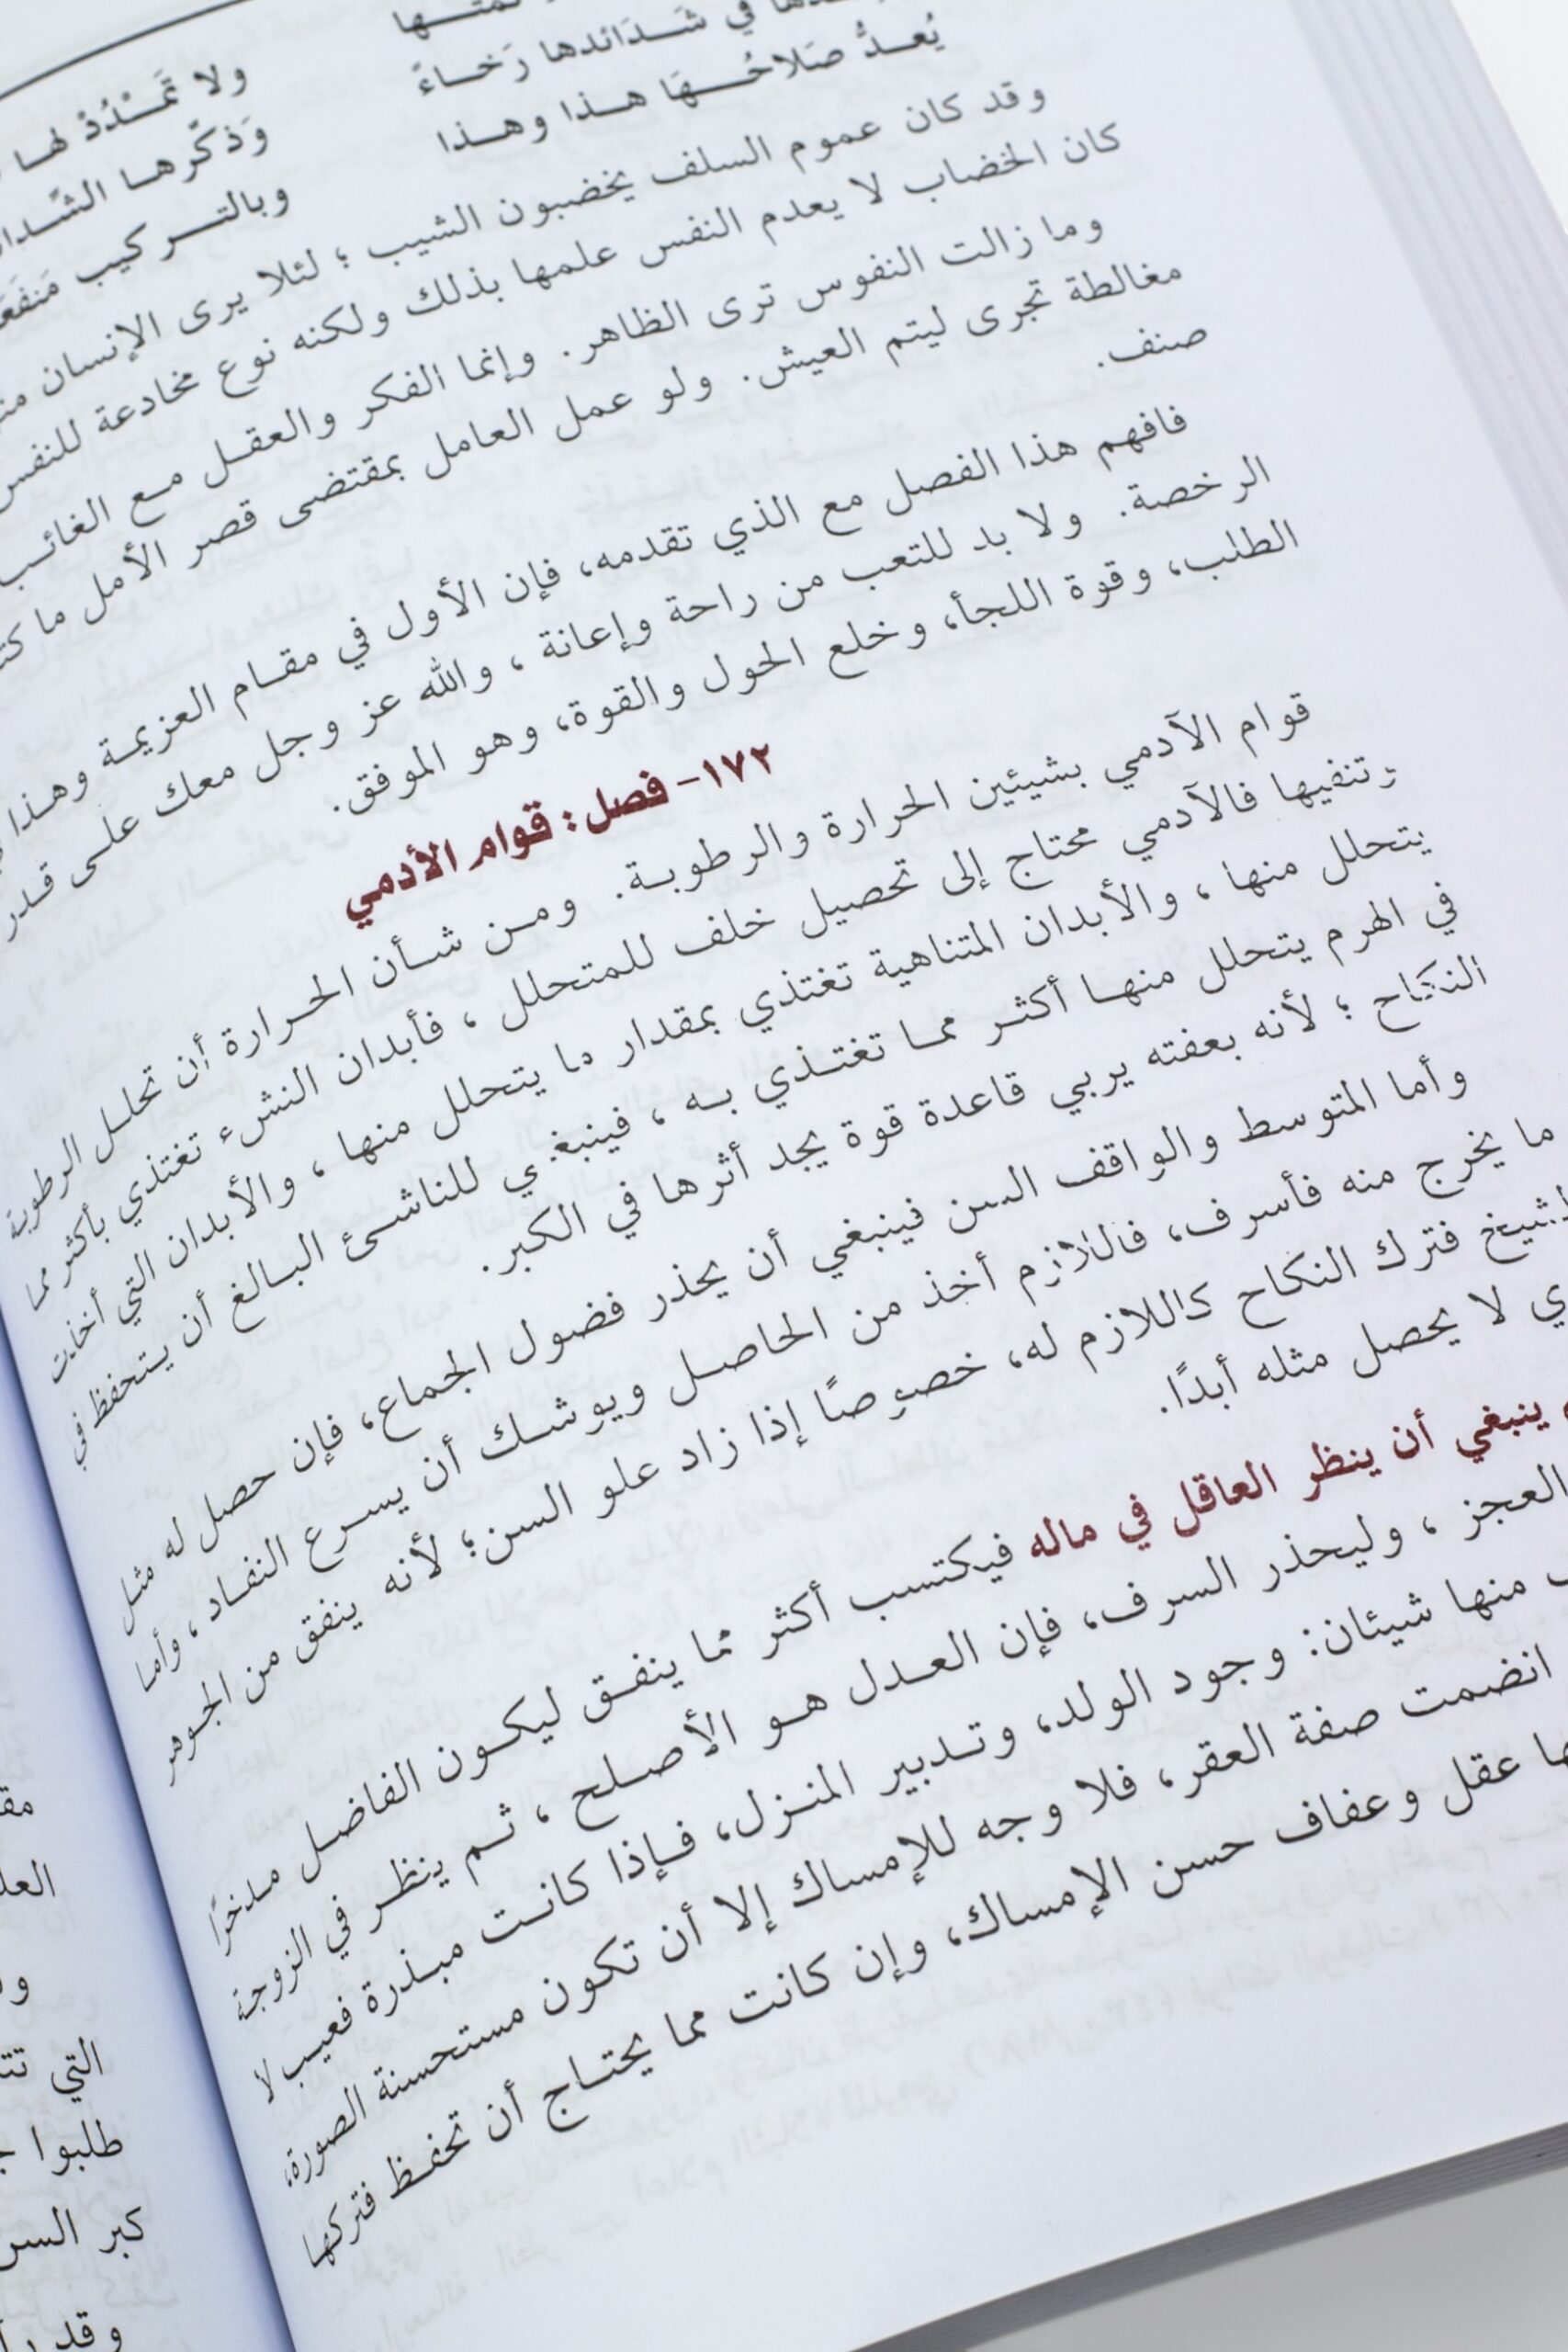 ولا تمْدُدْ لها
وَذكّرها
يُعدُّ صَلاحُهَا هذا وهذا
في شَدَائدها رَخاءً
وبالتركيب
وقد كان عموم السلف يخضبون الشيب ؛ لئلا يرى الإنسان
كان الخضاب لا يعدم النفس علمها بذلك ولكنه نوع مخادعة للنفس
وما زالت النفوس ترى الظاهر. وإنما الفكر والعقل مع الغائب
مغالطة تجرى ليتم العيش. ولو عمل العامل بمقتضى قصر الأمل ما
صنف.
فافهم هذا الفصل مع الذي تقدمه، فإن الأول في مقام العزيمة وهذا
الرخصة. ولا بد للتعب من راحة وإعانة ، والله عز وجل معك على قدر
الطلب، وقوة اللجأ، وخلع الحول والقوة، وهو الموفق.
١٧٢- فصل : قوام الأدمي
قوام الآدمي بشيئين الحرارة والرطوبة. ومن شأن الحرارة أن تحلل الرطوبة
وتنفيها فالآدمي محتاج إلى تحصيل خلف للمتحلل ، فأبدان النشء تغتذي بأكثر مما
يتحلل منها ، والأبدان المتناهية تغتذي بمقدار ما يتحلل منها ، والأبدان التي أخذت
في الهرم يتحلل منها أكثر مما تغتذي به ، فينبغي للناشئ البالغ أن يتحفظ في
النكاح ؛ لأنه بعفته يربي قاعدة قوة يجد أثرها في الكبر.
وأما المتوسط والواقف السن فينبغي أن يحذر فضول الجماع، فإن حصل له مثل
ما يخرج منه فأسرف، فاللازم أخذ من الحاصل ويوشك أن يسرع النفاد ، وأما
الشيخ فترك النكاح كاللازم له، خصوصًا إذا زاد علو السن؛ لأنه ينفق من الجوهر
لا يحصل مثله أبدًا.
ينبغي أن ينظر العاقل في ماله فيكتسب أكثر مما ينفق ليكون الفاضل مدخرًا
العجز ، وليحذر السرف، فإن العدل هو الأصلح ، ثم ينظر في الزوجة
منها شيئان: وجود الولد، وتدبير المنزل، فإذا كانت مبذرة فعيب لا
انضمت صفة العقر، فلا وجه للإمساك إلا أن تكون مستحسنة الصورة،
عقل وعفاف حسن الإمساك، وإن كانت مما يحتاج أن تحفظ فتركها
التي
طلبوا
كبر السن